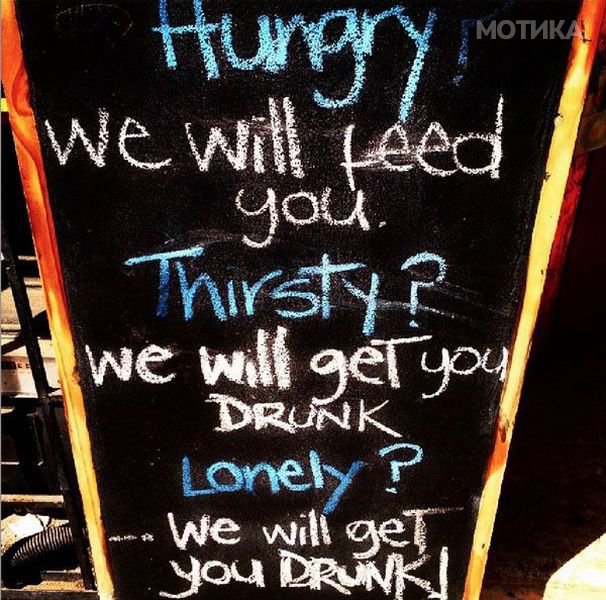 Hungry?
МОТИКА
we will feed
you.
Thirsty?
we will get you
DRUNK
Lonely?
-- we will get
you DRUNK!